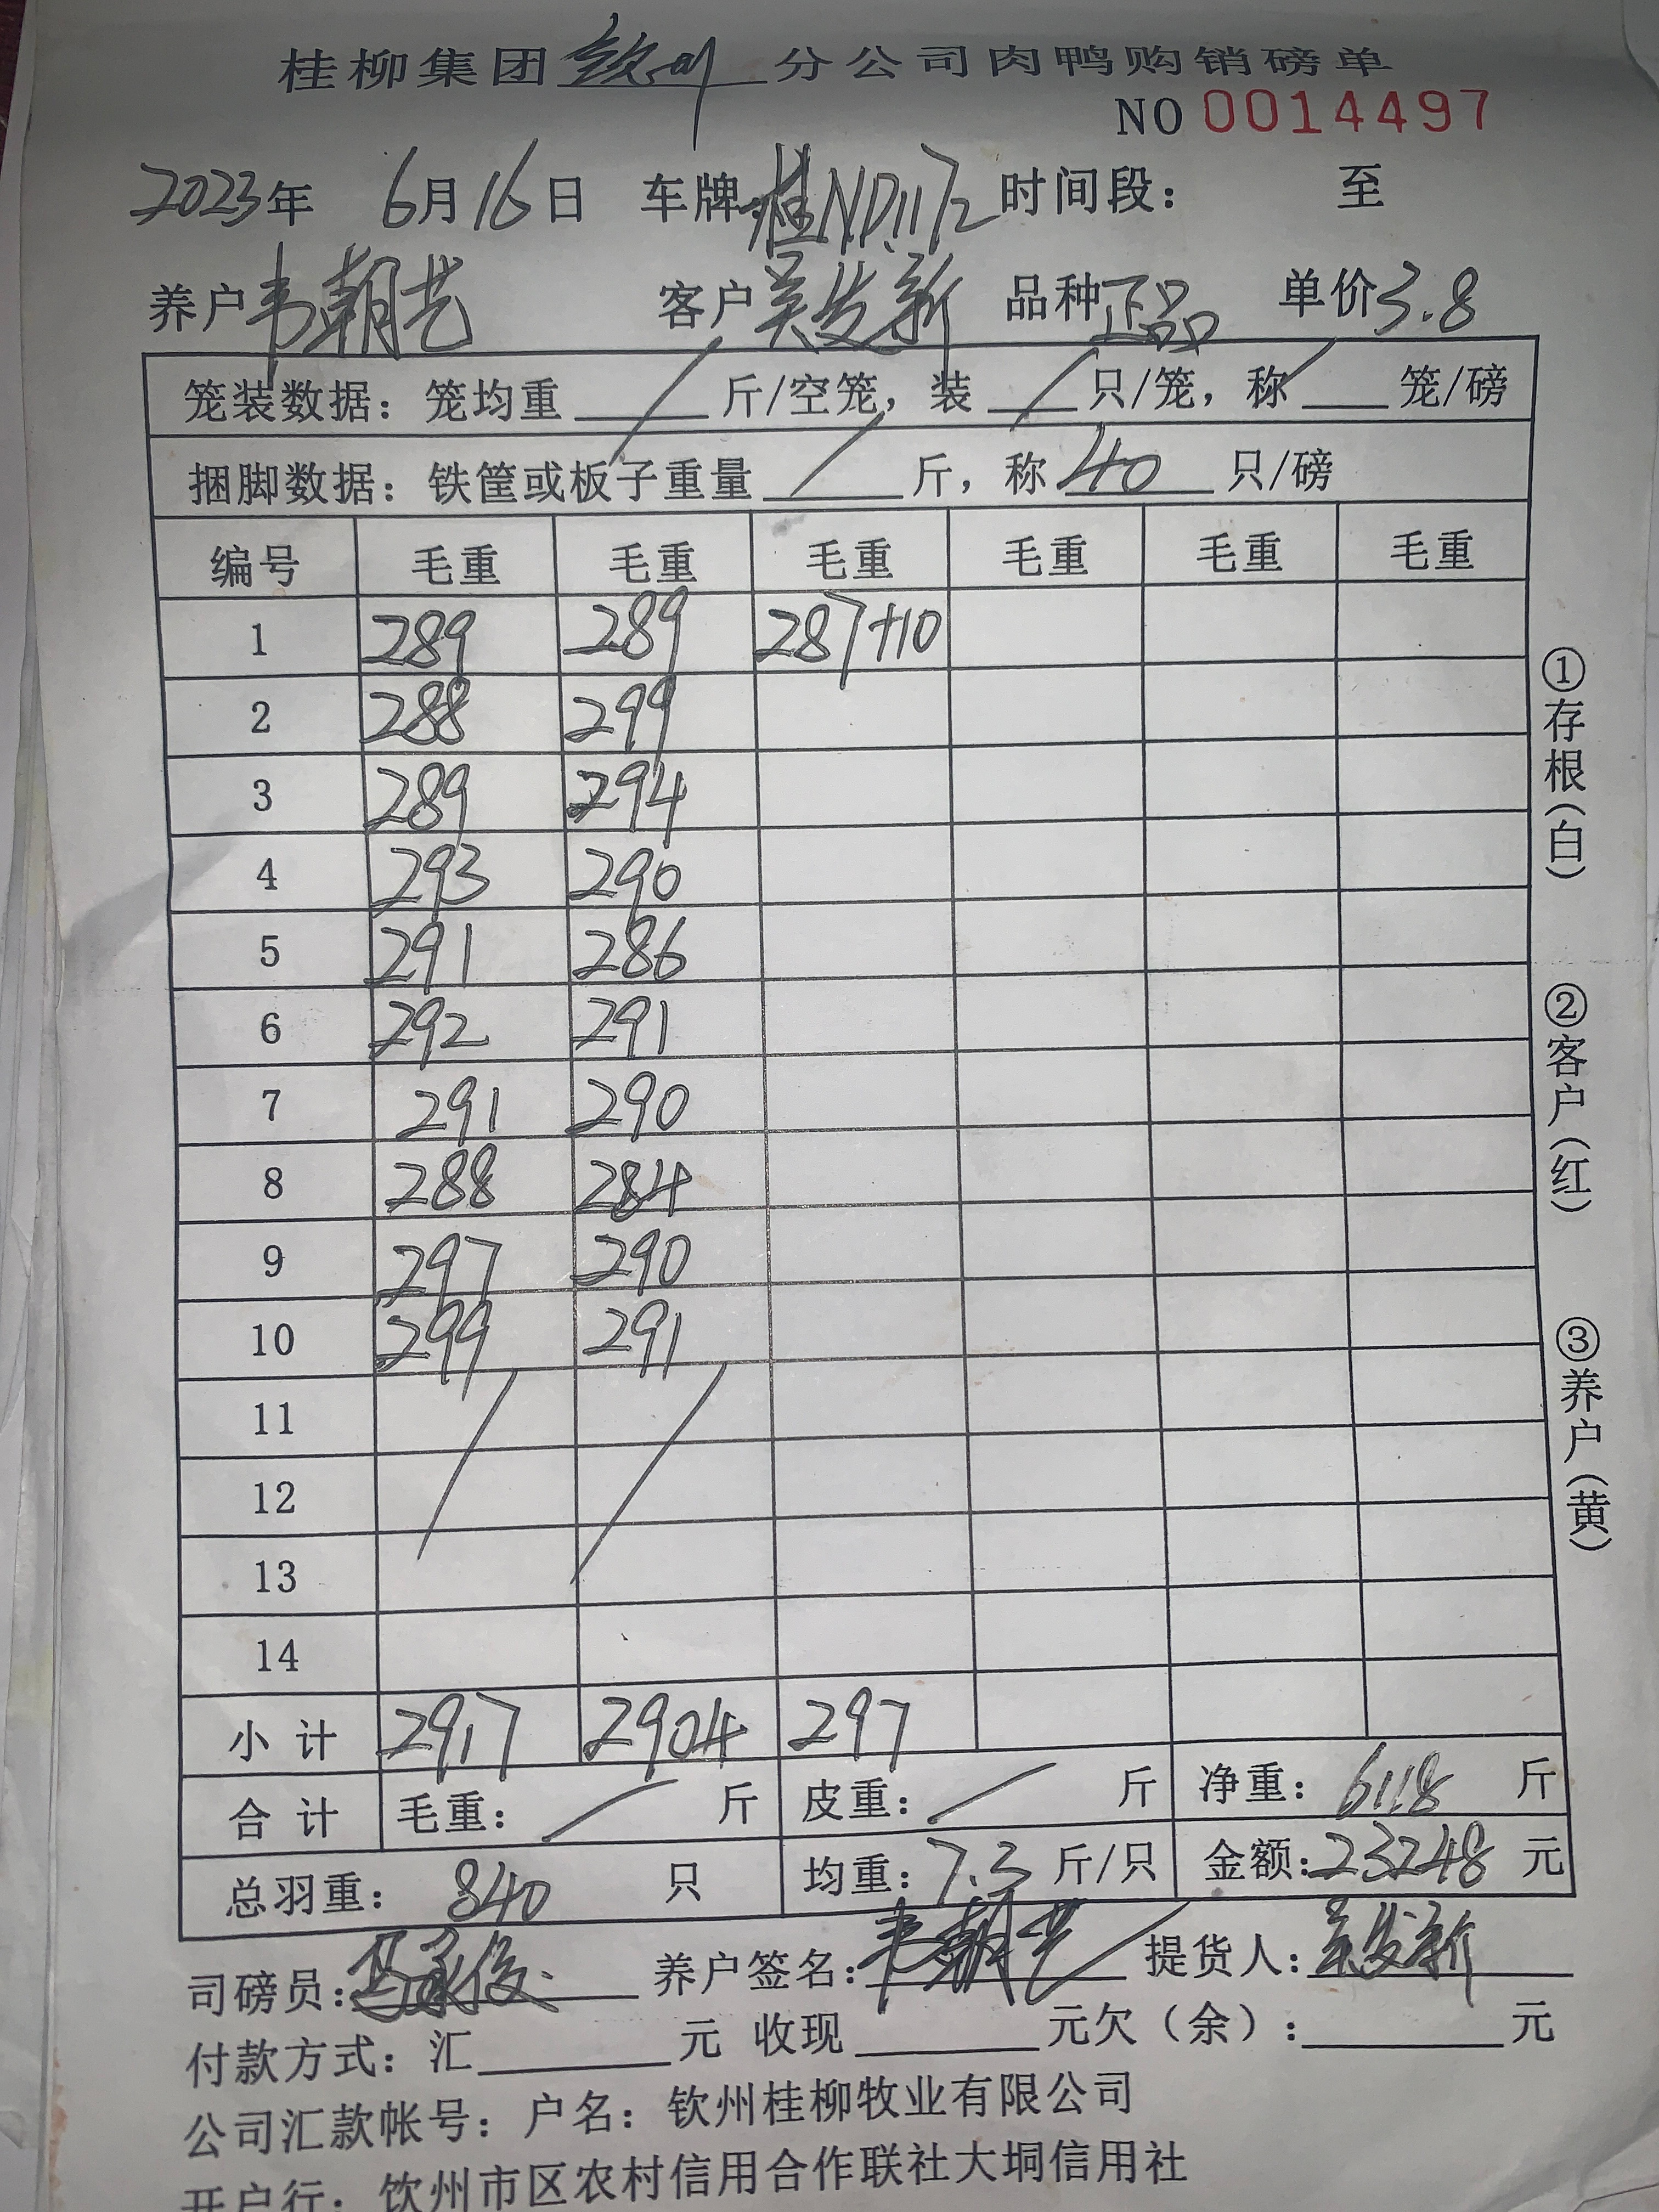 桂柳集团钦州分公司肉鸭购销磅单
NO 0014497
2023年 6月16日 车牌:桂ND1172 时间段: 至
养户韦朝艺 客户吴发新 品种正品 单价3.8
笼装数据:笼均重 / 斤/空笼,装 / 只/笼,称 / 笼/磅
捆脚数据:铁筐或板子重量 / 斤,称 40 只/磅
编号 毛重 毛重 毛重 毛重 毛重 毛重
1 289 289 287+10
2 288 299
3 289 294
4 293 290
5 291 286
6 292 291
7 291 290
8 288 284
9 297 290
10 299 291
11
12
13
14
小计 2917 2904 297
合计 毛重: / 斤 皮重: / 斤 净重: 6118 斤
总羽重: 840 只 均重: 7.3 斤/只 金额:23248 元
司磅员:冯承俊 养户签名:韦朝艺 提货人:吴发新
付款方式:汇 元 收现 元欠(余): 元
公司汇款帐号:户名:钦州桂柳牧业有限公司
开户行:钦州市区农村信用合作联社大垌信用社
①存根(白)
②客户(红)
③养户(黄)